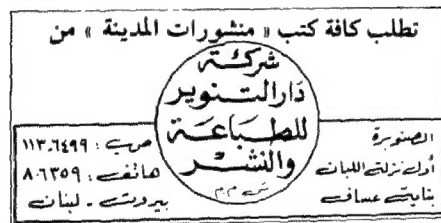 تطلب كافة كتب « منشورات المدينة » من
شركة
دار التنوير
للطباعة
والنشر
ش م م
الصنوبرة
أول نزلة اللبان
بناية عساف
ص ب : ١١٣.٦٤٩٩
هاتف : ٨٠٦٣٥٩
بيروت - لبنان